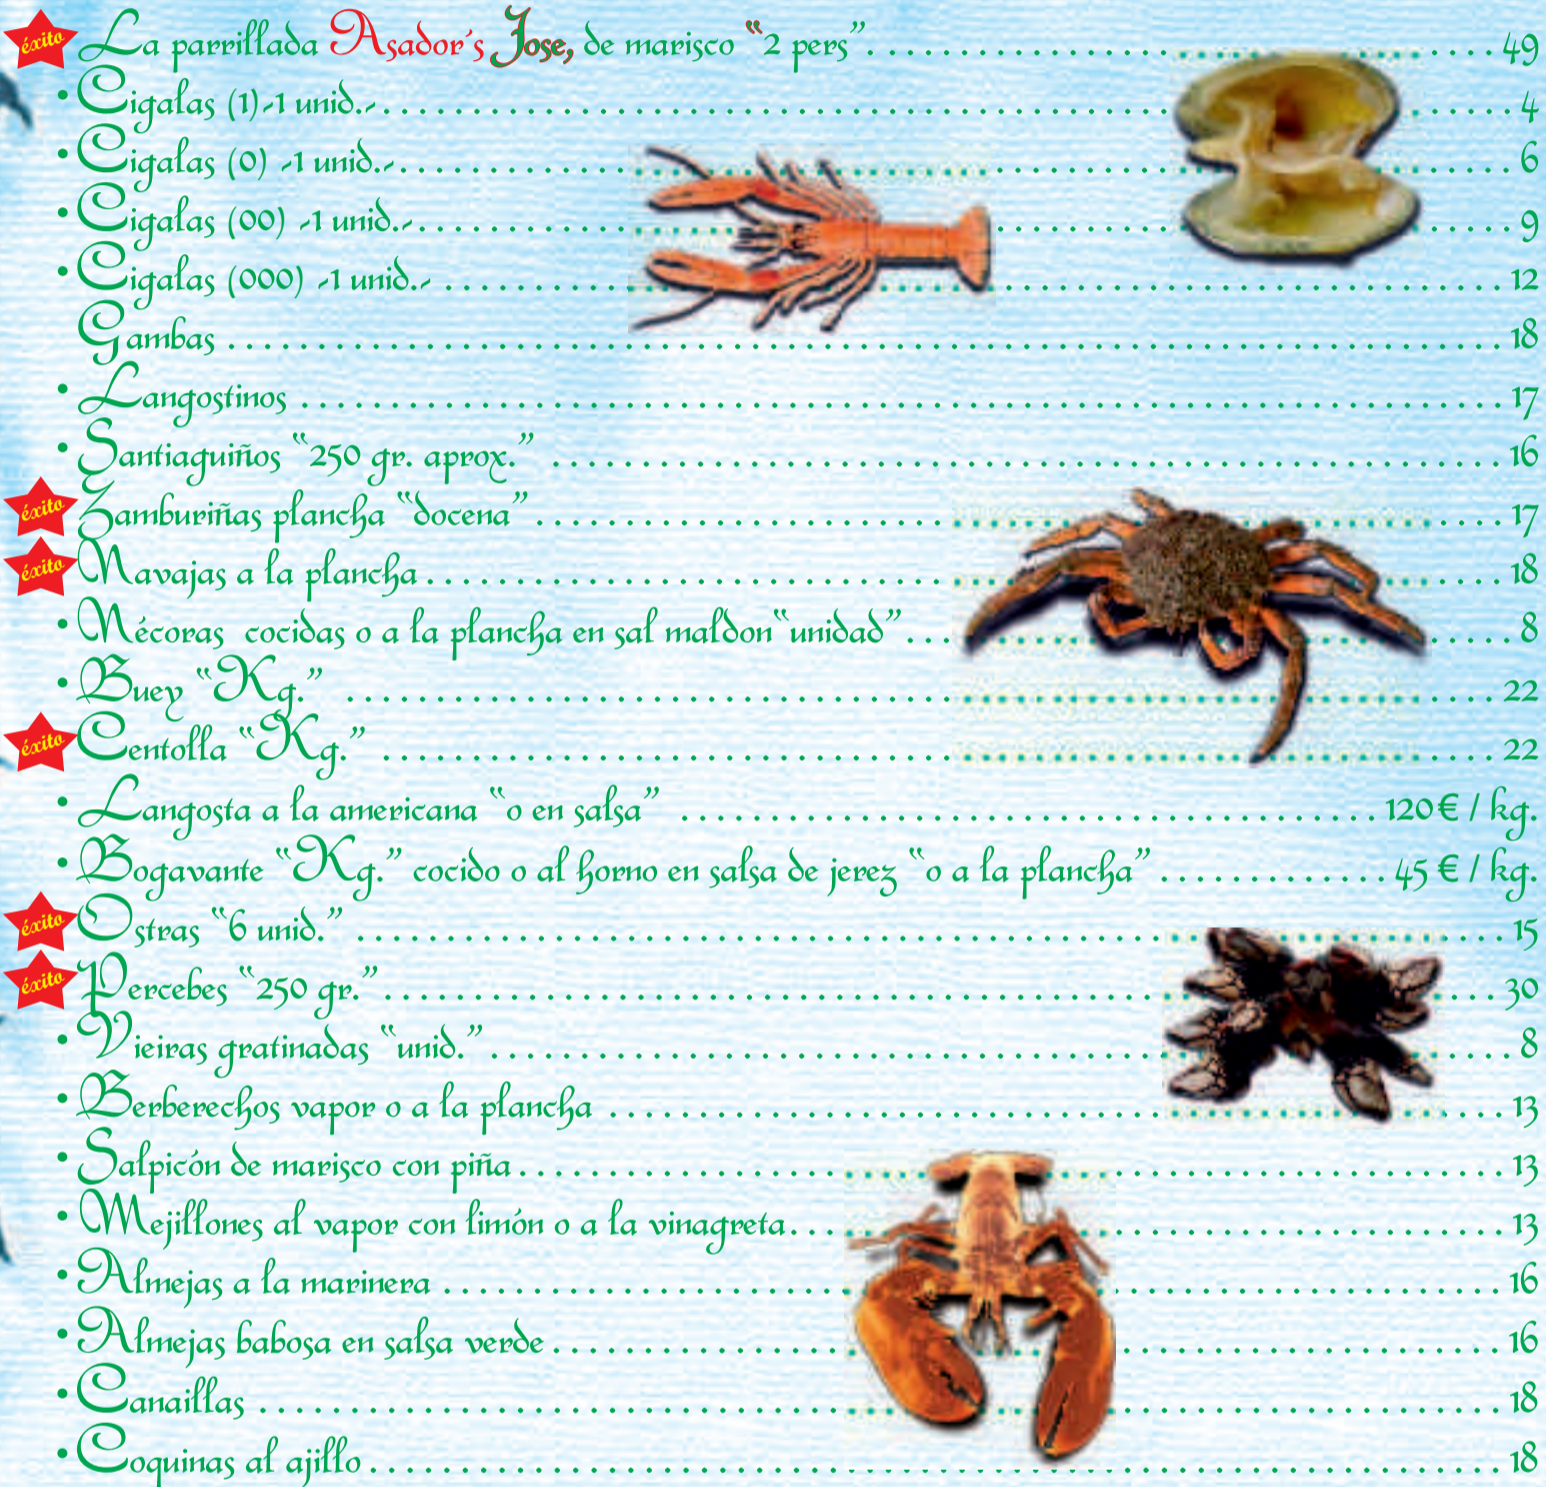 éxito La parrillada Asador's Jose, de marisco "2 pers". . . . . . . . . . 49
• Cigalas (1)-1 unid.-. . . . . . . . . . 4
• Cigalas (0) -1 unid.-. . . . . . . . . . 6
• Cigalas (00) -1 unid.-. . . . . . . . . . 9
• Cigalas (000) -1 unid.- . . . . . . . . . . 12
Gambas . . . . . . . . . . 18
• Langostinos . . . . . . . . . . 17
• Santiaguiños "250 gr. aprox." . . . . . . . . . . 16
éxito Zamburiñas plancha "docena" . . . . . . . . . . 17
éxito Navajas a la plancha . . . . . . . . . . 18
• Nécoras cocidas o a la plancha en sal maldon"unidad". . . . . . . . . . 8
• Buey "Kg." . . . . . . . . . . 22
éxito Centolla "Kg." . . . . . . . . . . 22
• Langosta a la americana "o en salsa" . . . . . . . . . . 120€ / kg.
• Bogavante "Kg." cocido o al horno en salsa de jerez "o a la plancha" . . . . . . . . . . 45 € / kg.
éxito Ostras "6 unid." . . . . . . . . . . 15
éxito Percebes "250 gr.". . . . . . . . . . 30
• Vieiras gratinadas "unid." . . . . . . . . . . 8
• Berberechos vapor o a la plancha . . . . . . . . . . 13
• Salpicón de marisco con piña. . . . . . . . . . 13
• Mejillones al vapor con limón o a la vinagreta. . . . . . . . . . 13
• Almejas a la marinera . . . . . . . . . . 16
• Almejas babosa en salsa verde . . . . . . . . . . 16
• Canaillas . . . . . . . . . . 18
• Coquinas al ajillo . . . . . . . . . . 18